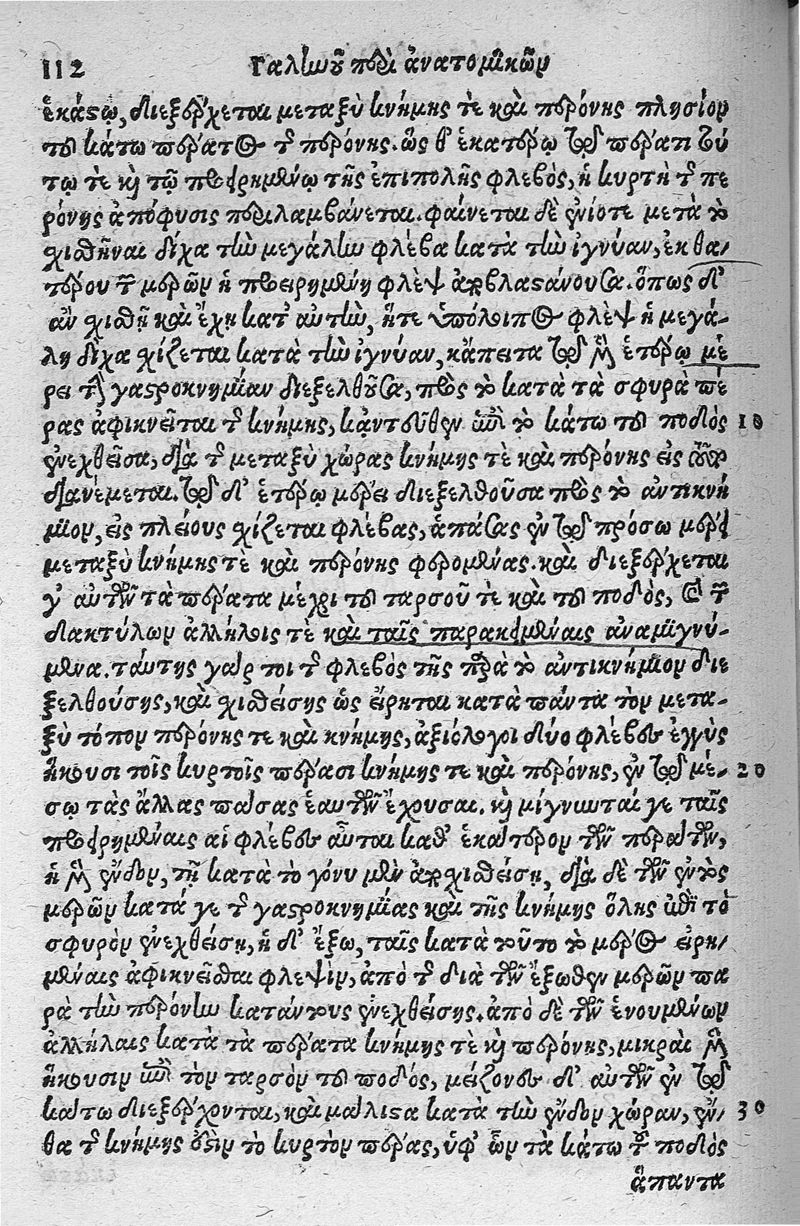 112 Γαληνοῦ περὶ ἀνατομικῶν
ἑκάστῳ, διεξέρχεται μεταξὺ κνήμης τὲ καὶ περόνης πλησίον
τοῦ κάτω πέρατος τῆς περόνης. ὡς θ' ἑκατέρῳ τῷ πέρατι τού
τῳ τὲ καὶ τῷ προειρημένῳ τῆς ἐπιπολῆς φλεβὸς, ἡ κυρτὴ τῆς πε
ρόνης ἀπόφυσις περιλαμβάνεται. φαίνεται δὲ ἐνίοτε μετὰ τὸ
σχισθῆναι δίχα τὴν μεγάλην φλέβα κατὰ τὴν ἰγνύαν, ἐκ θα-
τέρου τῶν μερῶν ἡ προειρημένη φλὲψ ἀποβλαστάνουσα. ὅπως δ'
ἂν σχισθῇ καὶ ἔχῃ κατ' αὐτὴν, ἥτε ὑπόλοιπος φλὲψ ἡ μεγά-
λη δίχα σχίζεται κατὰ τὴν ἰγνύαν, κἄπειτα τῷ μὲν ἑτέρῳ μέ
ρει τὴν γαστροκνημίαν διεξελθοῦσα, πρὸς τὸ κατὰ τὰ σφυρὰ πέ
ρας ἀφικνεῖται τῆς κνήμης, κἀντεῦθεν ἐπὶ τὸ κάτω τοῦ ποδὸς 10
ἐνεχθεῖσα, διὰ τῆς μεταξὺ χώρας κνήμης τὲ καὶ περόνης εἰς αὐτὸν
διανέμεται. τῷ δ' ἑτέρῳ μέρει διεξελθοῦσα πρὸς τὸ ἀντικνή
μιον, εἰς πλείους σχίζεται φλέβας, ἁπάσας ἐν τῷ πρόσω μέρει
μεταξὺ κνήμης τὲ καὶ περόνης φερομένας. καὶ διεξέρχεται
γ' αὐτῶν τὰ πέρατα μέχρι τοῦ ταρσοῦ τὲ καὶ τοῦ ποδὸς, καὶ τῶν
δακτύλων ἀλλήλοις τὲ καὶ ταῖς παρακειμέναις ἀναμιγνύ-
μενα. ταύτης γάρ τοι τῆς φλεβὸς τῆς παρὰ τὸ ἀντικνήμιον διε
ξελθούσης, καὶ σχισθείσης ὡς εἴρηται κατὰ πάντα τὸν μετα-
ξὺ τόπον περόνης τε καὶ κνήμης, ἀξιόλογοι δύο φλέβες ἐγγὺς
ἥκουσι τοῖς κυρτοῖς πέρασι κνήμης τε καὶ περόνης, ἐν τῷ μέ- 20
σῳ τὰς ἄλλας πάσας ἑαυτῶν ἔχουσαι. καὶ μίγνυνταί γε ταῖς
προειρημέναις αἱ φλέβες αὗται καθ' ἑκάτερον τῶν περάτων,
ἡ μὲν ἔνδον, τῇ κατὰ τὸ γόνυ μὲν ἀποσχισθείσῃ, διὰ δὲ τῶν ἐντὸς
μερῶν κατά γε τῆς γαστροκνημίας καὶ τῆς κνήμης ὅλης ἐπὶ τὸ
σφυρὸν ἐνεχθείσῃ, ἡ δ' ἔξω, ταῖς κατὰ τοῦτο τὸ μέρος εἰρη-
μέναις ἀφικνεῖσθαι φλεψὶν, ἀπὸ τῆς διὰ τῶν ἔξωθεν μερῶν πα
ρὰ τὴν περόνην κατάντους ἐνεχθείσης. ἀπὸ δὲ τῶν ἑνουμένων
ἀλλήλαις κατὰ τὰ πέρατα κνήμης τὲ καὶ περόνης, μικραὶ μὲν
ἥκουσιν ἐπὶ τὸν ταρσὸν τοῦ ποδὸς, μείζονες δ' αὐτῶν ἐν τῷ
κάτω διεξέρχονται, καὶ μάλιστα κατὰ τὴν ἔνδον χώραν, ἔν- 30
θα τῆς κνήμης ἐστὶν τὸ κυρτὸν πέρας, ὑφ' ὧν τὰ κάτω τοῦ ποδὸς
ἅπαντα